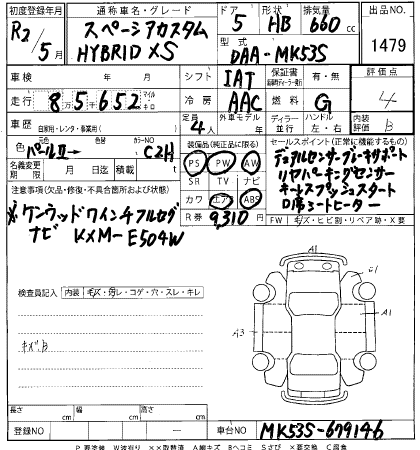 初度登録年月 通称車名・グレード ドア 形状 排気量 出品NO.
R2/5月 スペーシアカスタム HYBRID XS 5 HB 660cc 1479
型式 DAA-MK53S
車検 年 月 シフト IAT 保証書 有・無 評価点
走行 8万5千652 マイル キロ 冷房 AAC 燃料 G 4
車歴 自家用・レンタ・事業用( ) 定員 4人 外車モデル 年 ディーラー 並行 ハンドル 左・右 内装 B
色 元色 パールⅡ→ 色替 カラーNO C2H
装備品(純正品に限る)
PS PW AW
SR TV ナビ
カワ エアB ABS
R券 9,310円
セールスポイント(正常に機能するもの)
デュアルセンサーブレーキサポート
リヤパーキングセンサー
キーレスプッシュスタート
D席シートヒーター
名義変更期限 月 日迄 積載 t
注意事項(欠品・修復・不具合箇所および状態)
※ケンウッドワイン4フルセグ
ナビ KXM-E504W
FW キズ・ヒビ割・リペア跡・X要
検査員記入 内装 キズ・汚レ・コゲ・穴・スレ・キレ
キズ.B
A1
A1
A3
長さ cm 幅 cm 高さ cm
登録NO 車台NO MK53S-679146
P要塗装 W波有り ××取替済 A線キズ Bヘコミ Sさび ×要交換 C腐食